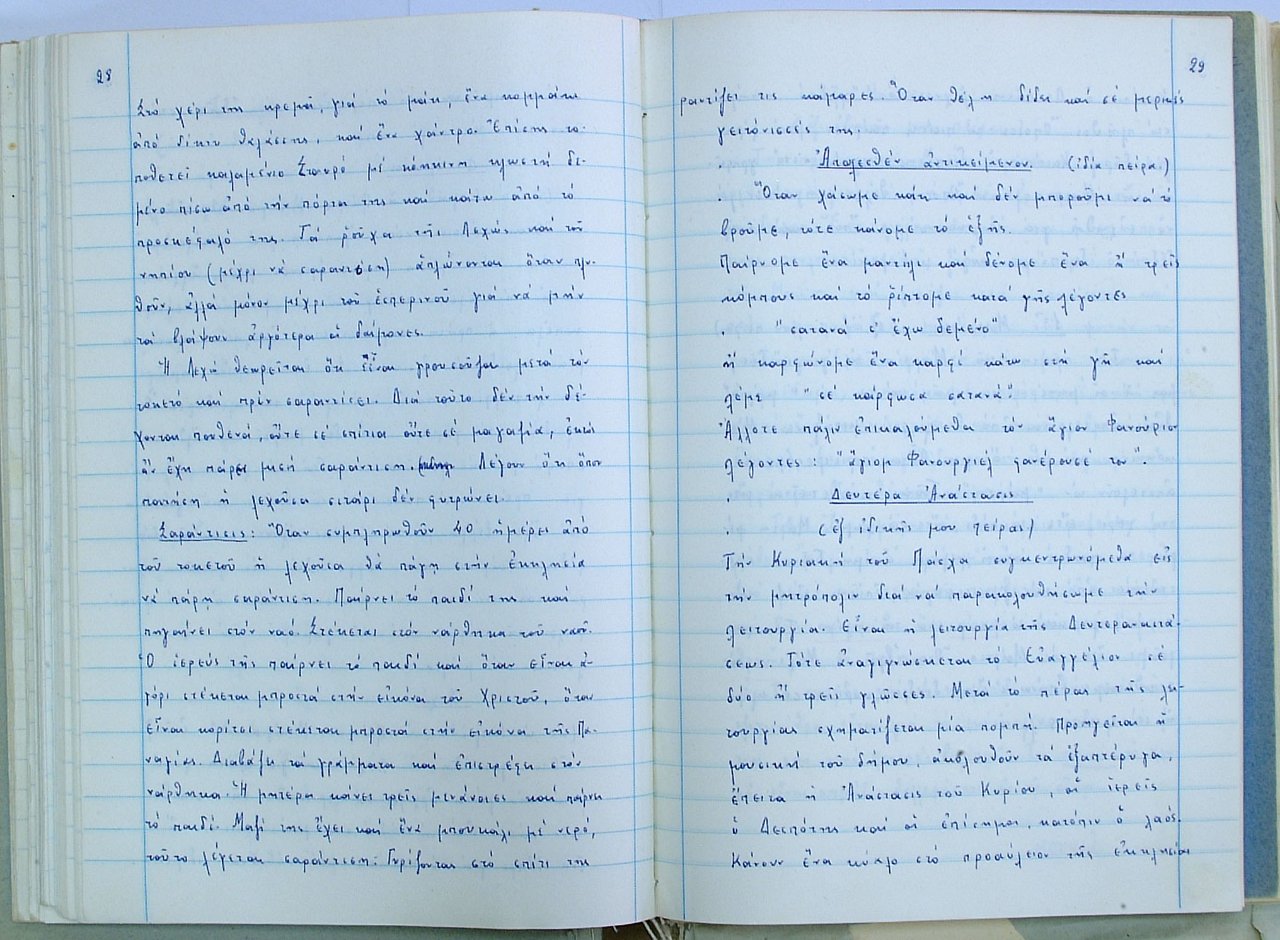 28
Στό χέρι της κρεμᾶ, γιά τό μάτι, ἕνα κομμάτι
ἀπό δίκτυ θαλάσσης, καί ἕνα χάντρο. Ἐπίσης το-
ποθετεῖ καλαμένιο Σταυρό μέ κόκκινη κλωστή δε-
μένο πίσω ἀπό τήν πόρτα της καί κάτω ἀπό τό
προσκέφαλό της. Τά ροῦχα τῆς Λεχῶς καί τοῦ
νηπίου (μέχρι νά σαραντίση) ἁπλώνονται ὅταν πλυ-
θοῦν, ἀλλά μόνον μέχρι τοῦ ἑσπερινοῦ γιά νά μήν
τά βλάψουν ἀργότερα οἱ δαίμονες.
Ἡ Λεχώ θεωρεῖται ὅτι εἶναι γρουσούζα μετά τόν
τοκετό καί πρίν σαραντίσει. Διά τοῦτο δέν τήν δέ-
χονται πουθενά, οὔτε σέ σπίτια οὔτε σέ μαγαζιά, ἐκτός
ἄν ἔχη πάρει μισή σαράντιση. Λέγουν ὅτι ὅπου
πατήση ἡ λεχοῦσα σιτάρι δέν φυτρώνει.
Σαράντισις: Ὅταν συμπληρωθοῦν 40 ἡμέρες ἀπό
τοῦ τοκετοῦ ἡ λεχοῦσα θά πάγη στήν ἐκκλησία
νά πάρη σαράντιση. Παίρνει τό παιδί της καί
πηγαίνει στόν ναό. Στέκεται στόν νάρθηκα τοῦ ναοῦ.
Ὁ ἱερεύς τῆς παίρνει τό παιδί καί ὅταν εἶναι ἀ-
γόρι στέκεται μπροστά στήν εἰκόνα τοῦ Χριστοῦ, ὅταν
εἶναι κορίτσι στέκεται μπροστά στήν εἰκόνα τῆς Πα-
ναγίας. Διαβάζει τά γράμματα καί ἐπιστρέφει στόν
νάρθηκα. Ἡ μητέρα κάνει τρεῖς μετάνοιες καί παίρνει
τό παιδί. Μαζί της ἔχει καί ἕνα μπουκάλι μέ νερό,
τοῦτο λέγεται σαράντιση. Γυρίζοντας στό σπίτι της
29
ραντίζει τις κάμαρες. Ὅταν θέλη δίδει καί σέ μερικές
γειτόνισσές της.
Ἀπολεσθέν ἀντικείμενον. (ἰδία πείρα)
Ὅταν χάσωμε κάτι καί δέν μποροῦμε νά τό
βροῦμε, τότε κάνομε τό ἑξῆς.
Παίρνομε ἕνα μαντήλι καί δένομε ἕνα ἤ τρεῖς
κόμπους καί τό ρίπτομε κατά γῆς λέγοντες
"σατανά σ' ἔχω δεμένο"
ἤ καρφώνομε ἕνα καρφί κάτω στή γῆ καί
λέμε "σέ κάρφωσα σατανά".
Ἄλλοτε πάλιν ἐπικαλούμεθα τόν ἅγιον Φανούριον
λέγοντες: "ἅγιομ Φανουργιέλ φανέρουσέ τον".
Δευτέρα Ἀνάστασις
(ἐξ ἰδικῆς μου πείρας)
Τήν Κυριακή τοῦ Πάσχα συγκεντρωνόμεθα εἰς
τήν μητρόπολιν διά νά παρακολουθήσωμε τήν
λειτουργία. Εἶναι ἡ λειτουργία τῆς Δευτεραναστά-
σεως. Τότε ἀναγιγνώσκεται τό Εὐαγγέλιον σέ
δύο ἤ τρεῖς γλῶσσες. Μετά τό πέρας τῆς λει-
τουργίας σχηματίζεται μία πομπή. Προηγεῖται ἡ
μουσική τοῦ δήμου, ἀκολουθοῦν τά ἑξαπτέρυγα,
ἔπειτα ἡ Ἀνάστασις τοῦ Κυρίου, οἱ ἱερεῖς
ὁ Δεσπότης καί οἱ ἐπίσημοι, κατόπιν ὁ λαός.
Κάνουν ἕνα κύκλο στό προαύλιον τῆς ἐκκλησίας